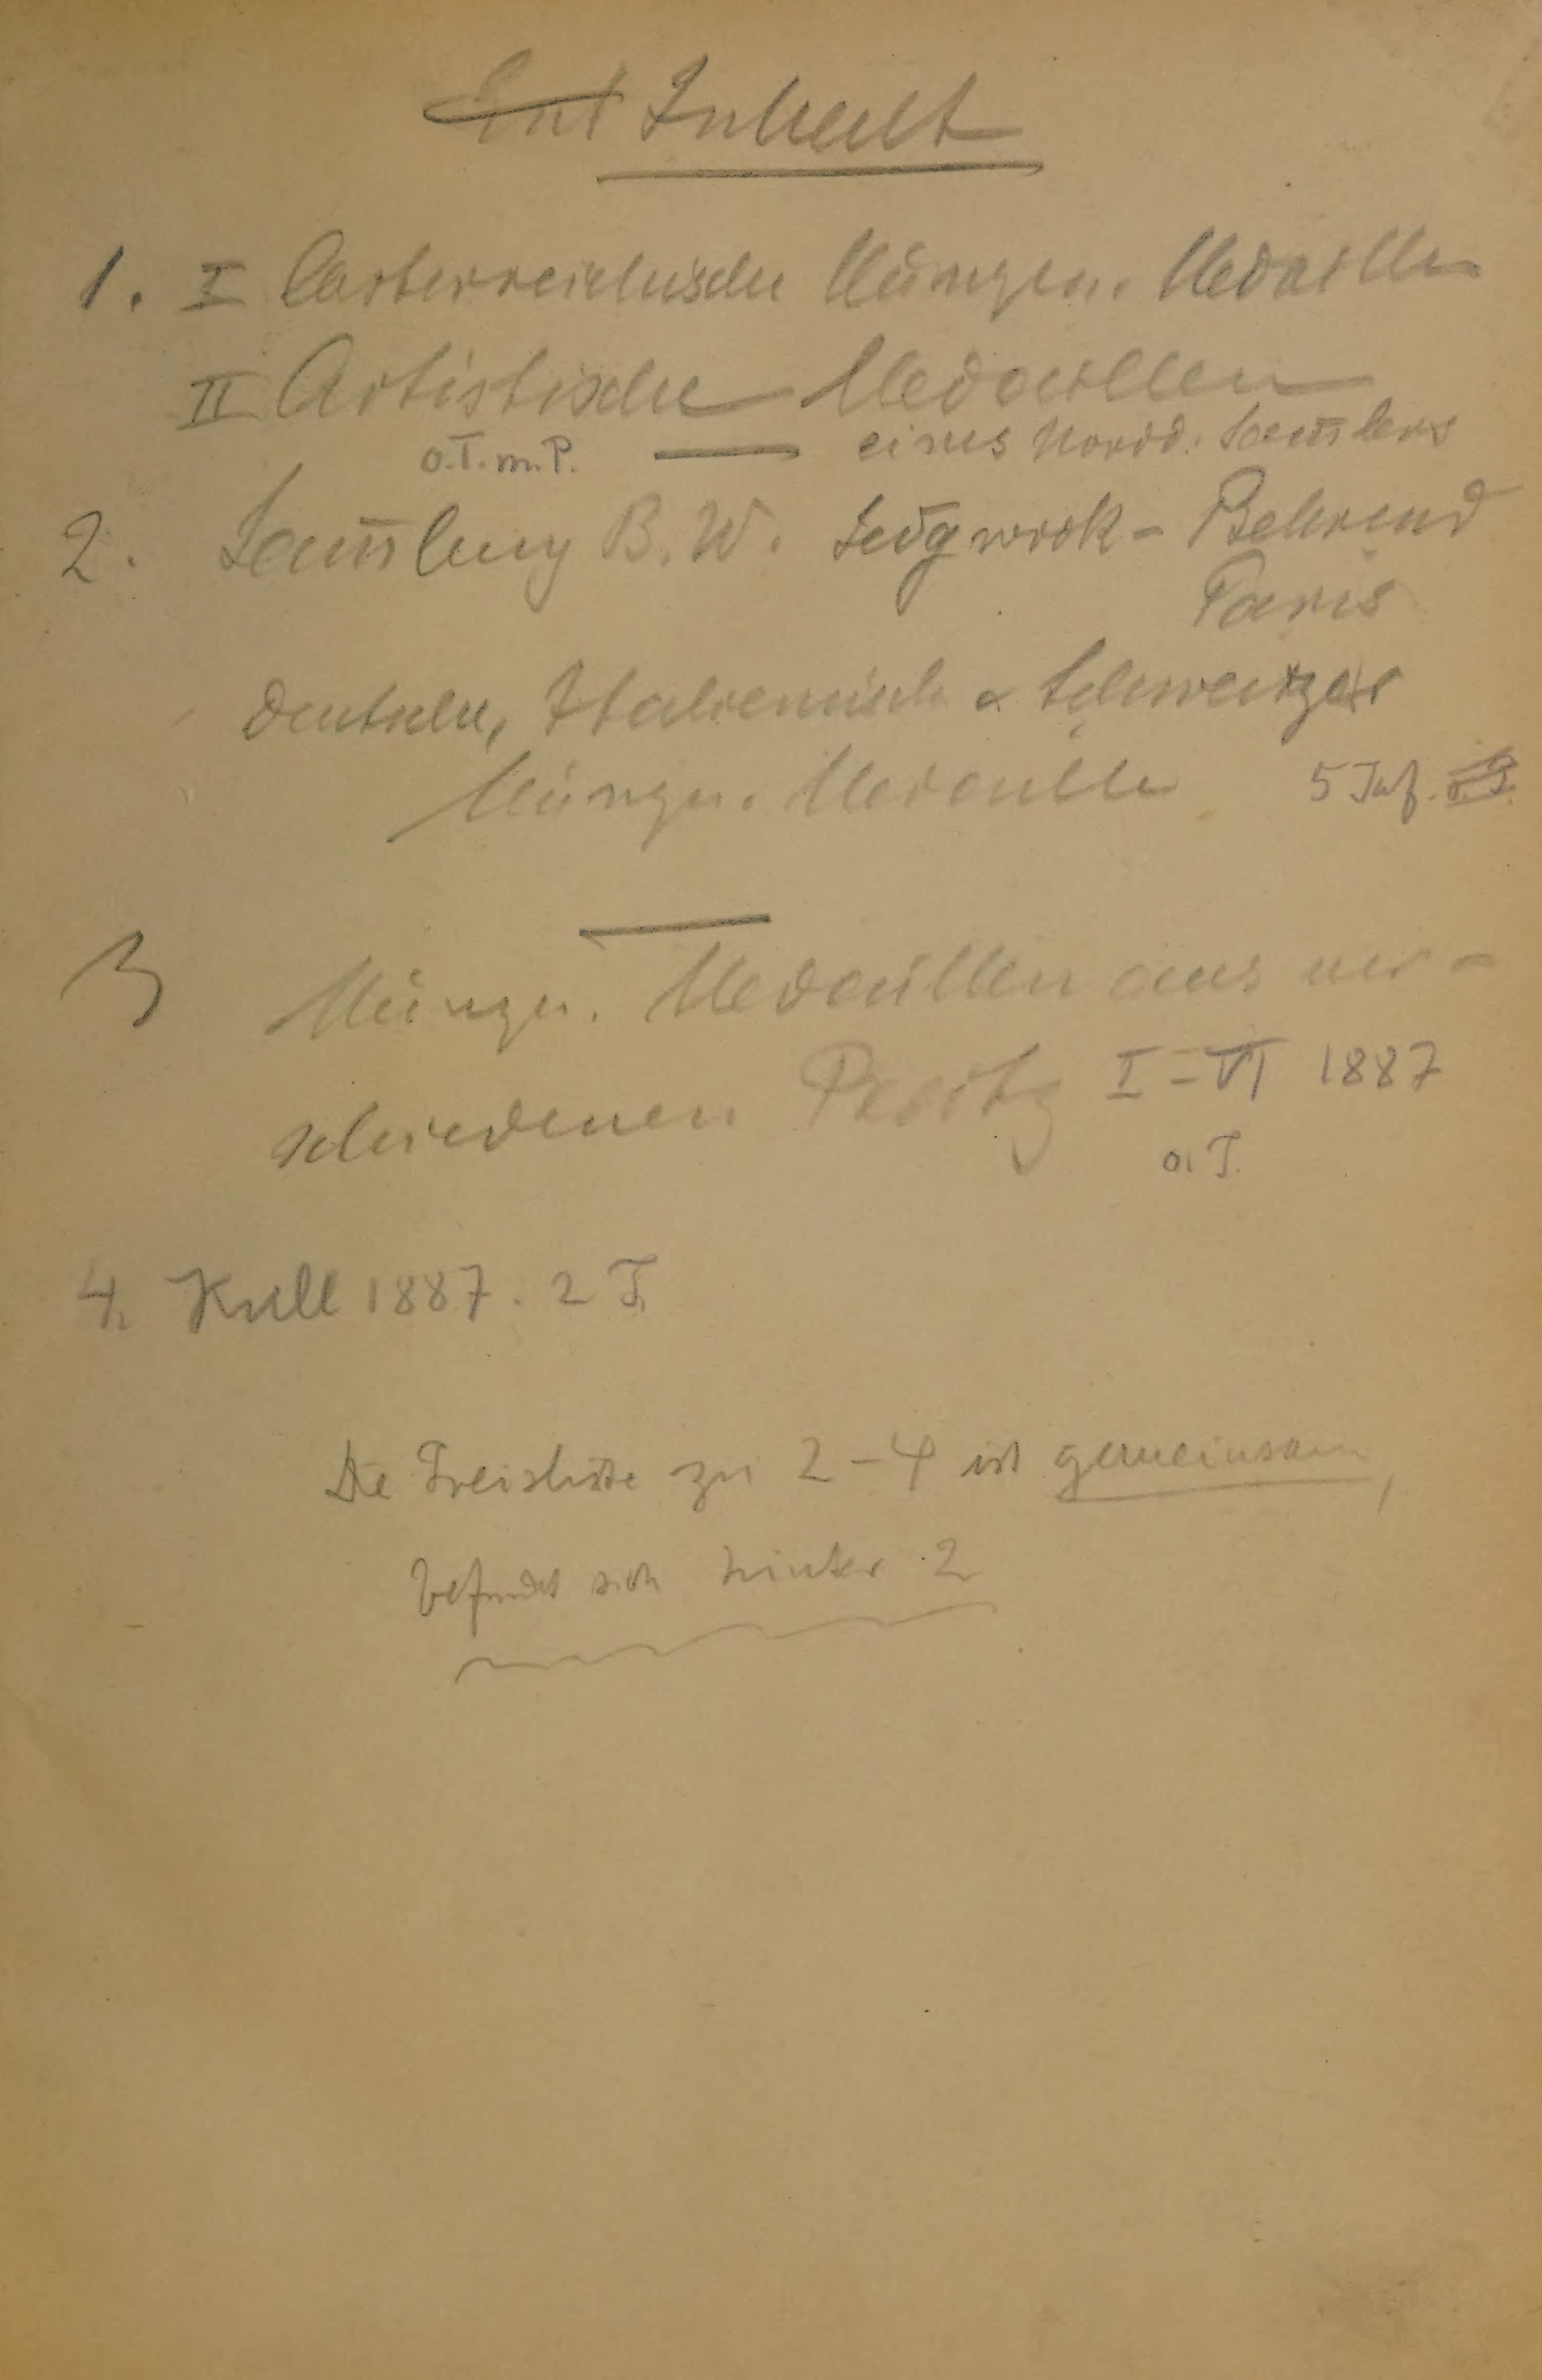 Inhalt
1. I Oesterreichische Münzen. Medaillen
II Artistische Medaillen
o.T. m.P. — eines Nordd. Sam̄lers
2. Sam̄lung B. W. Sedgwick - Behrend
Paris
Deutsche, Italienische & Schweitzer
Münzen. Medaillen 5 Taf.
3 Münzen. Medaillen aus ver-
schiedenen Besitz I-VI 1887
o. T.
4. Kull 1887. 2 T.
Die Preisliste zu 2-4 ist gemeinsam,
befindet sich hinter 2